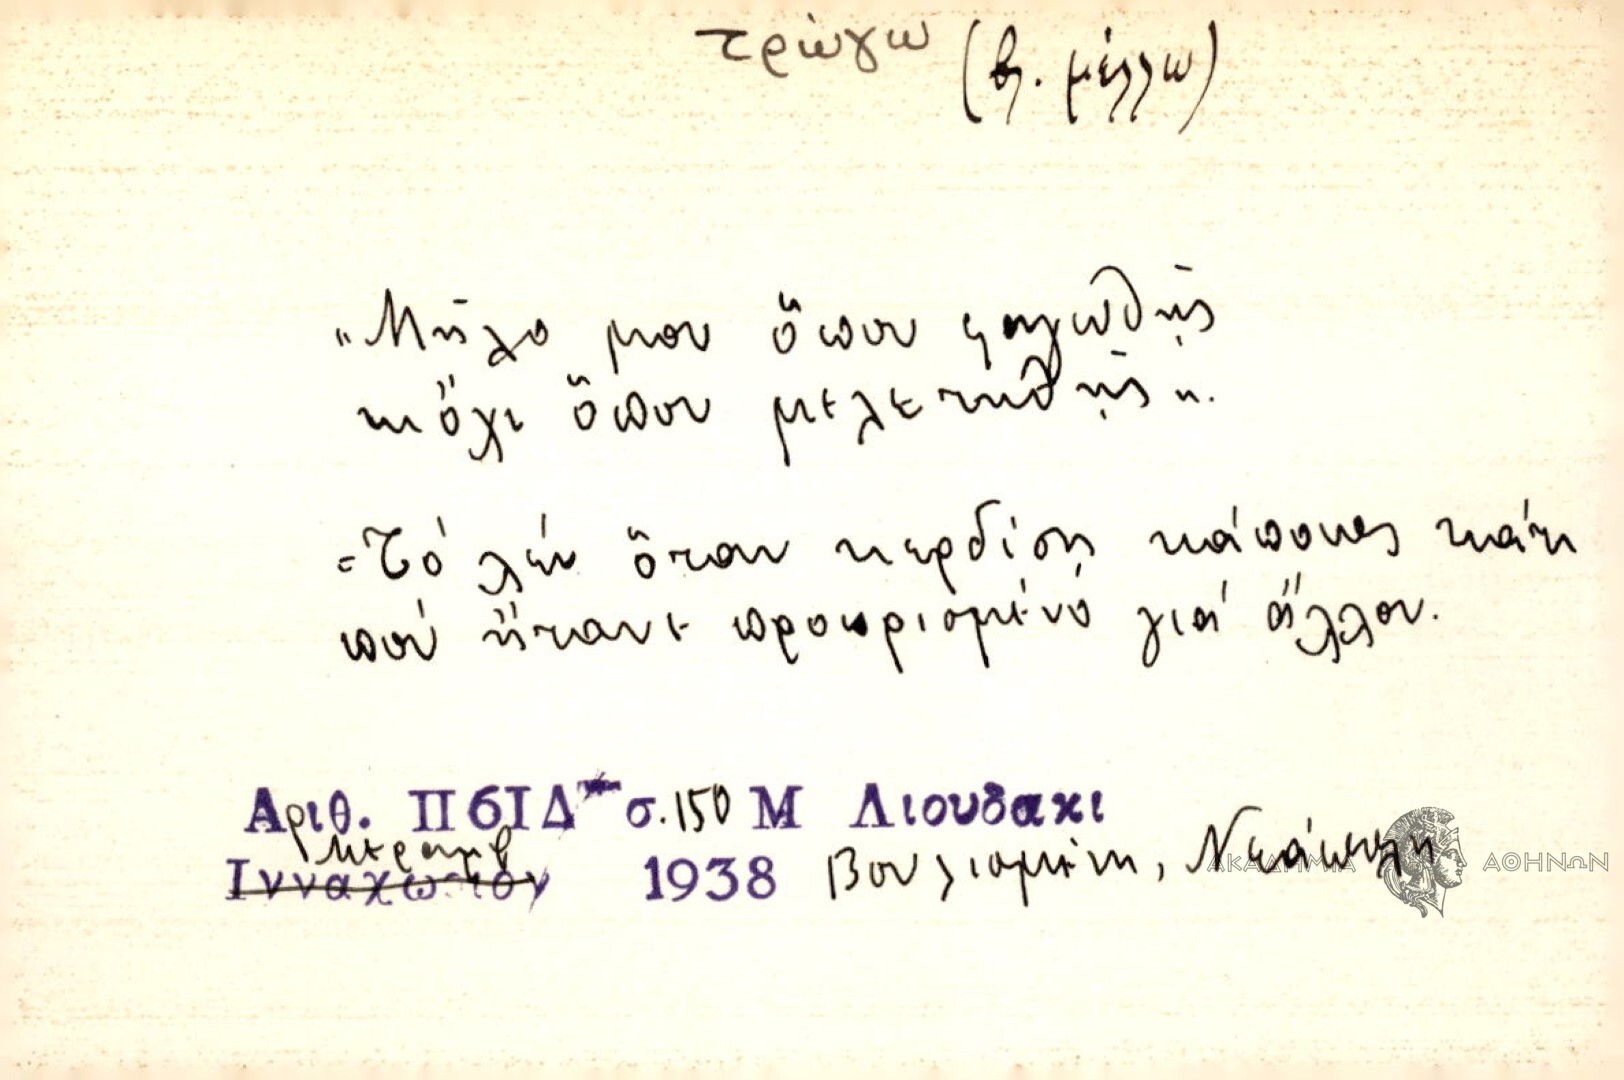 τρώγω (βλ. μέλλω)
"Μῆλο μου ὅπου φαγωθῇς
κι ὄχι ὅπου μελετηθῇς".
=Τό λέν ὅταν κερδίση κάποιος κάτι
πού ἤτανε προωρισμένο γιά ἄλλον.
Αριθ. Π6ΙΔ σ. 150 Μ Λιουδακι
Μεραμβ
Ινναχωτον 1938 Βουλισμένη, Νεάπολη
ΑΚΑΔΗΜΙΑ ΑΘΗΝΩΝ